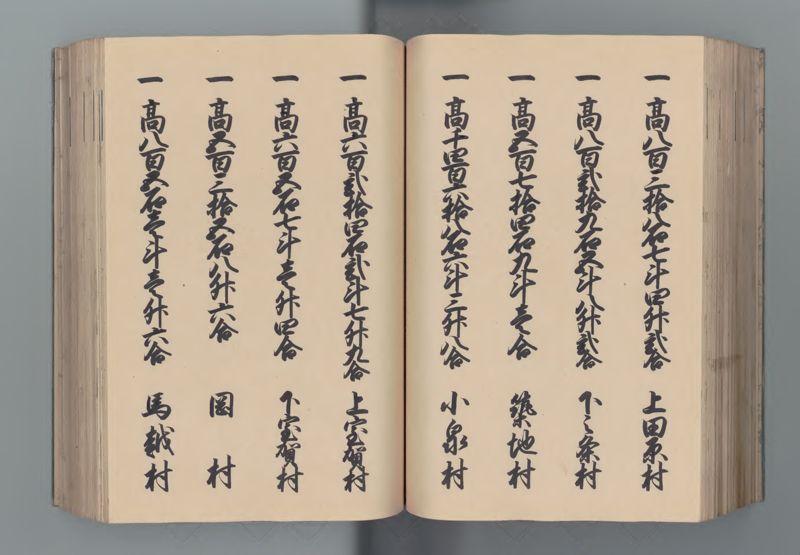 一 高八百三拾八石七斗四升弐合 上田原村
一 高八百弐拾九石五斗八升弐合 下之条村
一 高五百七拾四石九斗壱合 築地村
一 高千四百六拾八石六斗三升八合 小泉村
一 高六百弐拾四石弐斗七升九合 上室賀村
一 高六百五石七斗壱升四合 下室賀村
一 高五百三拾五石八升六合 岡村
一 高八百五石壱斗壱升六合 馬越村